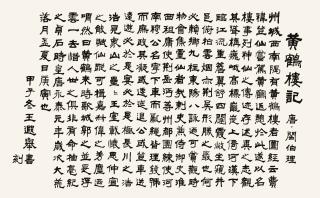 黄鶴樓記
唐·閻伯理
州城西南隅有黄鶴樓者圖經云費
禕登仙嘗駕黄鶴返憩於此遂以名
樓事列神仙之傳迹存述異之志觀
其聳構巍峨高標巃嵸上倚河漢下
臨江流重簷翼館四闥霞敞坐窺井
邑俯拍雲烟亦荆吳形勝之最也何
必瀨鄉九柱東陽八詠乃可賞觀時
物會集靈仙者哉刺史兼侍御史淮
西租庸使荆岳沔等州都團練使河
南穆公名寧下車而亂繩皆理發號
而庶政其凝或逶迤退公或登車送
遠遊必於是宴必於是極長川之浩
浩見衆山之纍纍王室載懷思仲宣
之能賦仙蹤可揖嘉叔偉之芳塵迺
喟然曰黄鶴來時歌城郭之並是浮
雲一去惜人世之俱非有命抽毫紀
之貞石時皇唐永泰元年歲次大荒
落月孟夏日庚寅也
甲子冬王遐舉書
刻